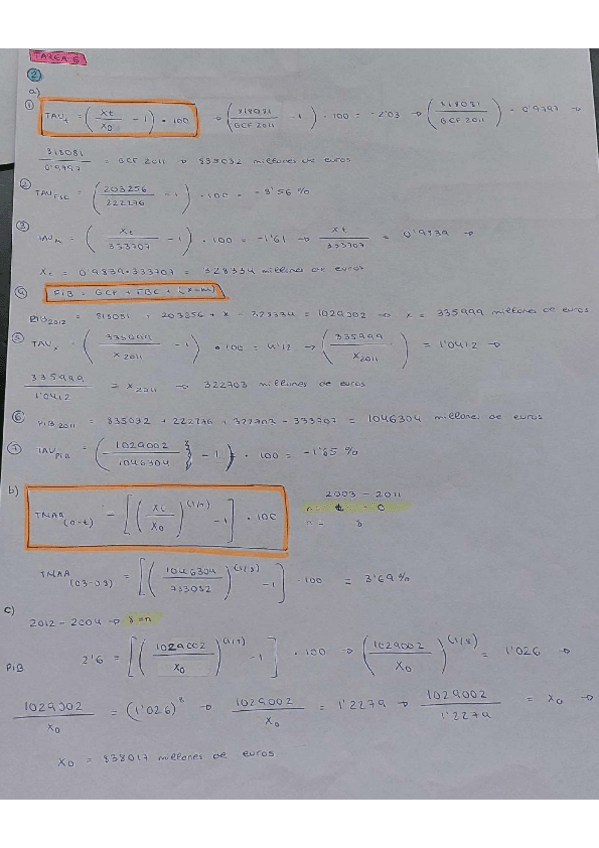 TAREA 6
②
a)
① TAV₁ = (Xt/X0 - 1) · 100 → (818081/GCF 2011 - 1) · 100 = -2'03 → (818081/GCF 2011) = 0'9797 →
818081/0'9797 = GCF 2011 → 835032 millones de euros
② TAV FBC = (203256/222276 - 1) · 100 = -8'56 %
③ TAV m = (Xt/333707 - 1) · 100 = -1'61 → Xt/333707 = 0'9839 →
Xt = 0'9839·333707 = 328334 millones de euros
④ PIB = GCF + FBC + (x-m)
PIB2012 = 818081 + 203256 + x - 328334 = 1029002 → x = 335999 millones de euros
⑤ TAV x = (335999/x2011 - 1) · 100 = 4'12 → (335999/x2011) = 1'0412 →
335999/1'0412 = x2011 → 322703 millones de euros
⑥ PIB 2011 = 835032 + 222276 + 322703 - 333707 = 1046304 millones de euros
⑦ TAV PIB = (1029002/1046304 - 1) · 100 = -1'65 %
b) TMAA (0-t) = [(Xt/X0)^(1/n) - 1] · 100
2003 - 2011
n = t - 0
n = 8
TMAA (03-) = [(1046304/)^(1/8) - 1] · 100 = 3'69 %
c)
2012 - 2004 → 8 = n
PIB 2'6 = [(1029002/X0)^(1/8) - 1] · 100 → (1029002/X0)^(1/8) = 1'026 →
1029002/X0 = (1'026)^8 → 1029002/X0 = 1'2279 → 1029002/1'2279 = X0 →
X0 = 838017 millones de euros